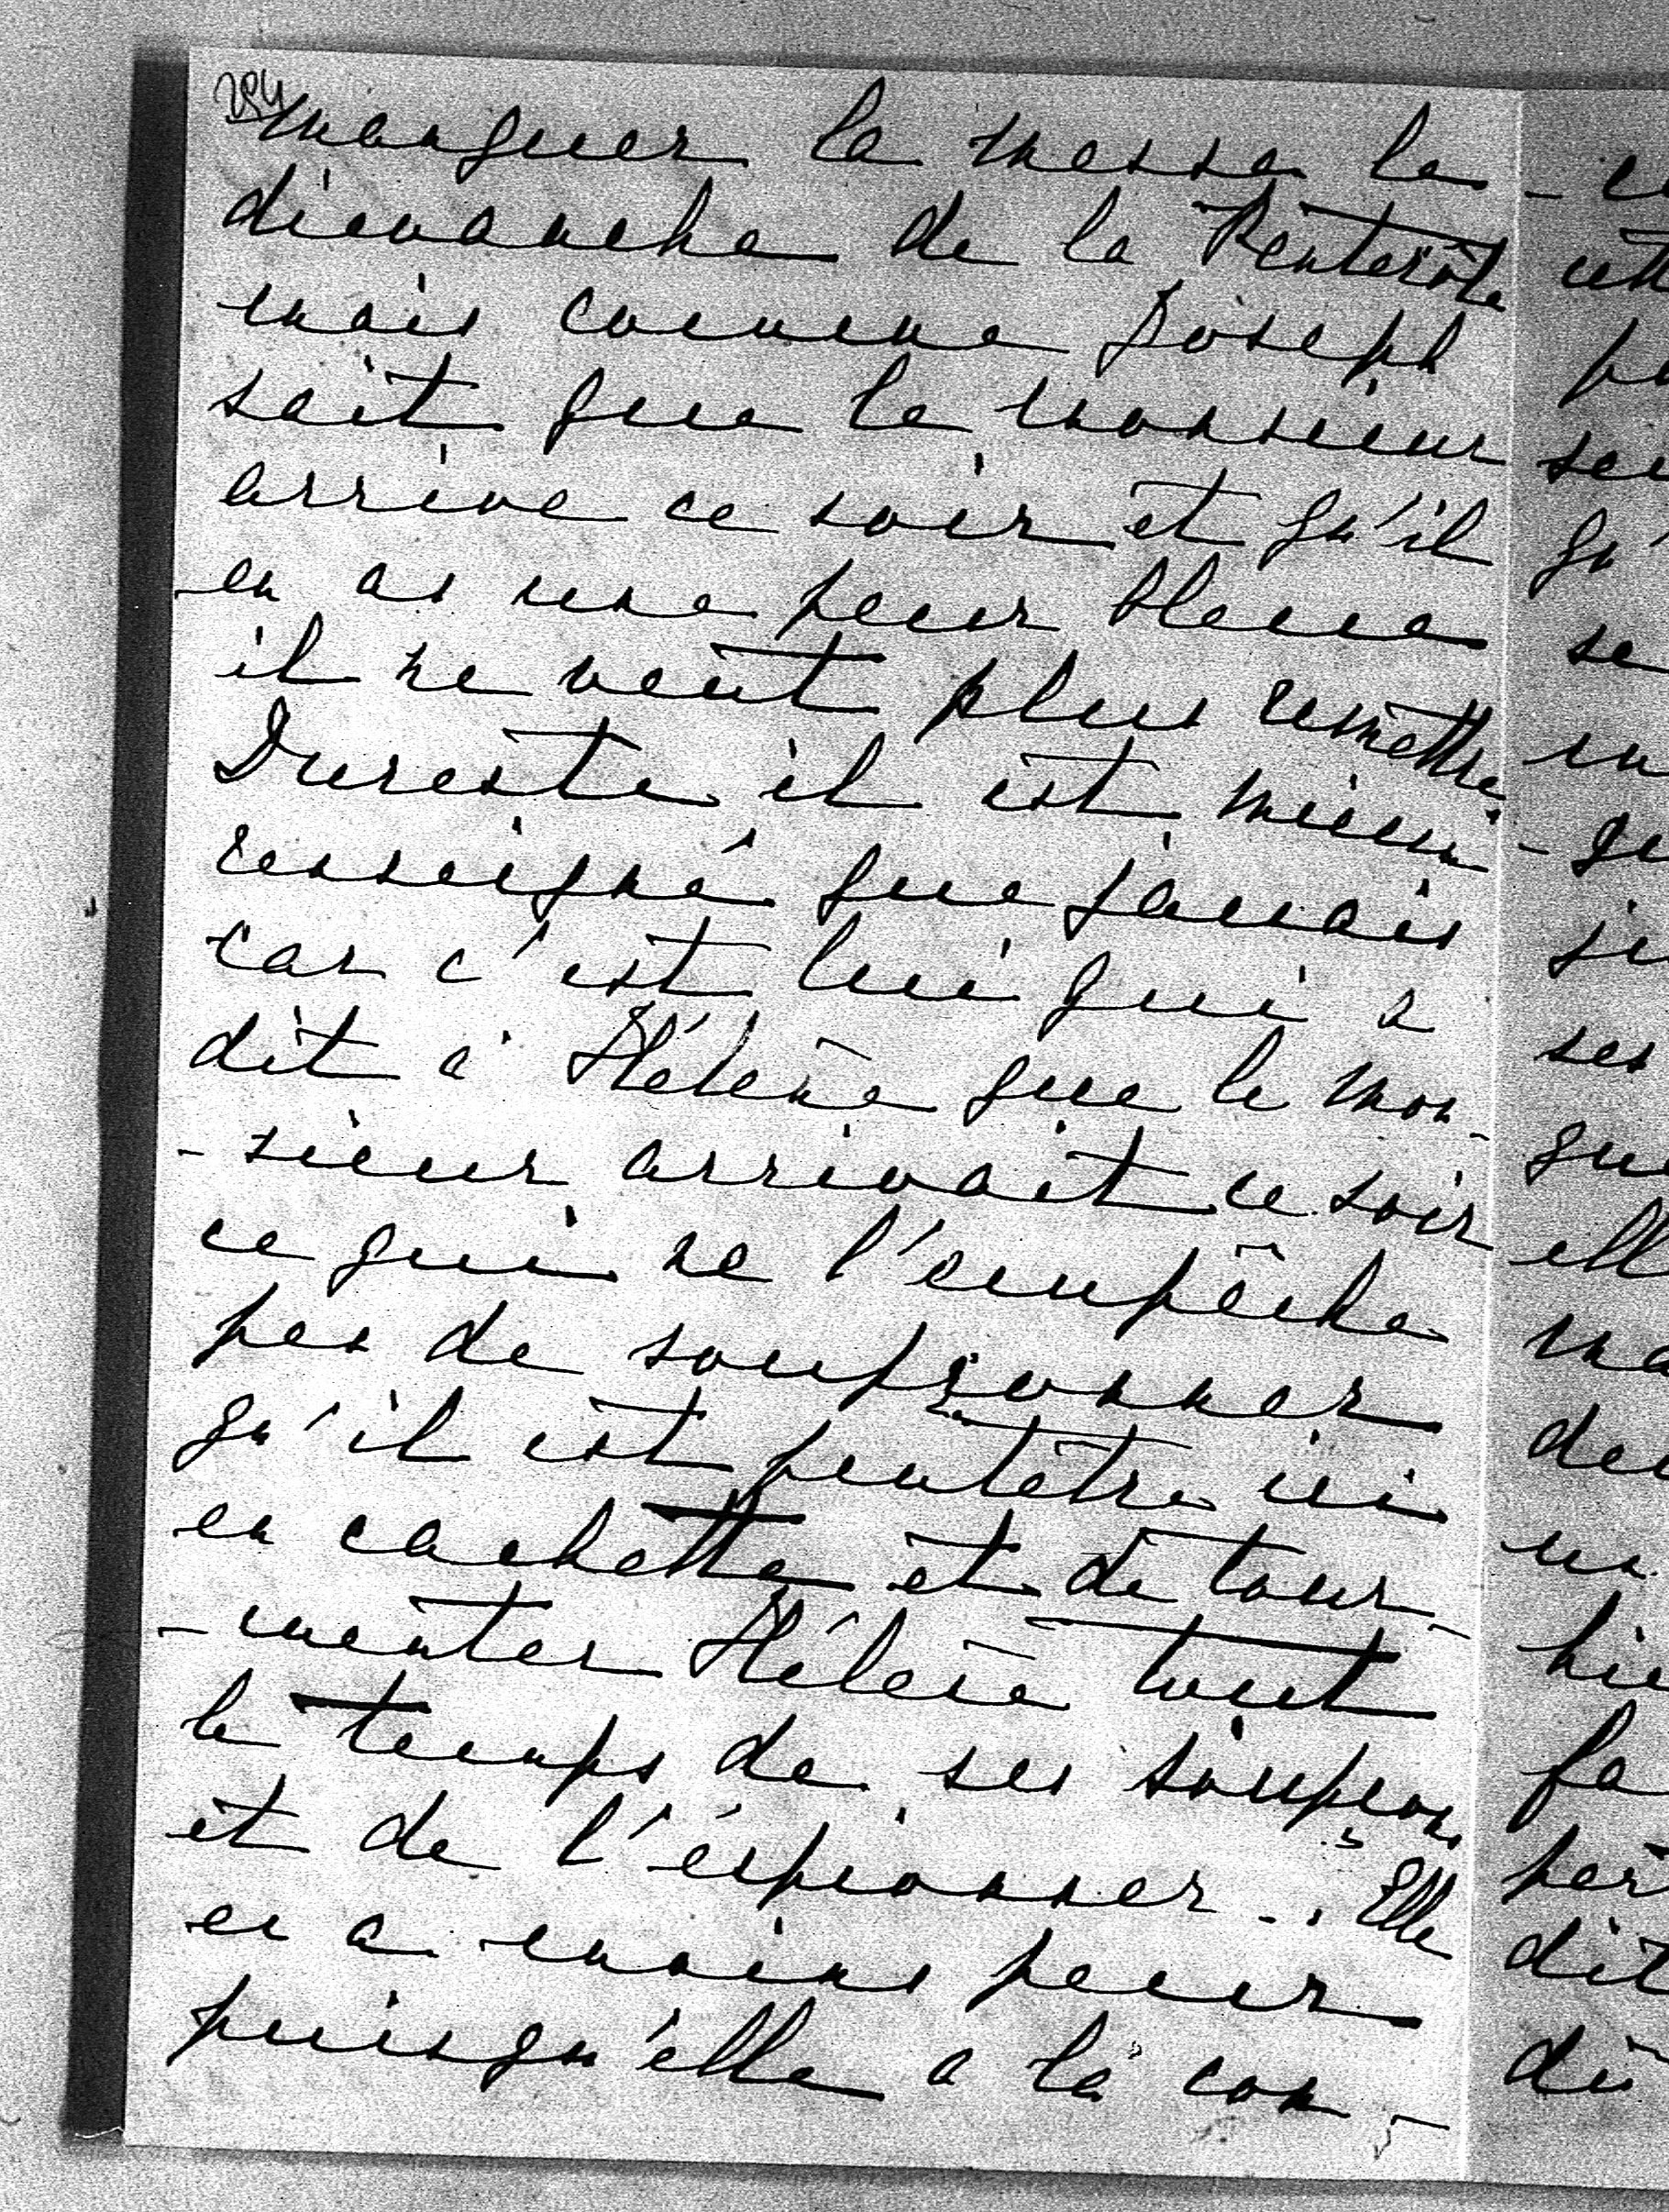 284
manquer la messe le
dimanche de la Pentecôte
mais comme Joseph
sait que le monsieur
arrive ce soir et qu'il
en as une peur bleue
il ne veut plus remettre.
Dureste il est mieux
renseigné que jamais
car c'est lui qui a
dit à Hélène que le mon-
-sieur arrivait ce soir
ce qui ne l'empêche
pas de soupçonner
qu'il est peutêtre ici
en cachette et de tour-
-menter Hélène tout
le temps de ses soupçons
et de l'éspionner. Elle
en a moins peur
puisqu'elle a la con-